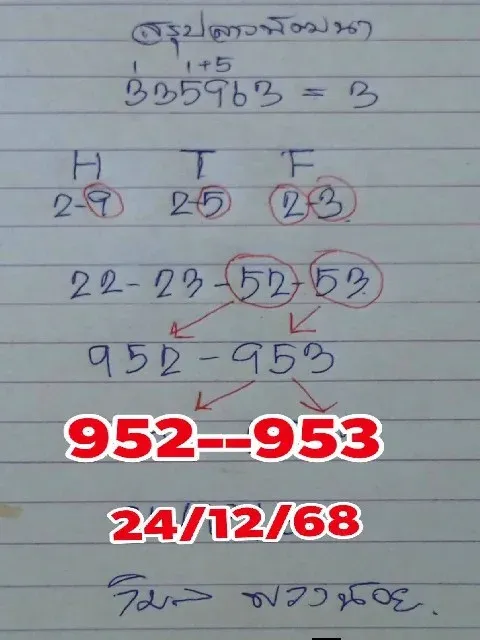 สรุปลาวพัฒนา
1 1+5
335963 = 3
H T F
2-9 2-5 2-3
22-23-52-53
952-953
952--953
24/12/68
วิมล พวงน้อย.